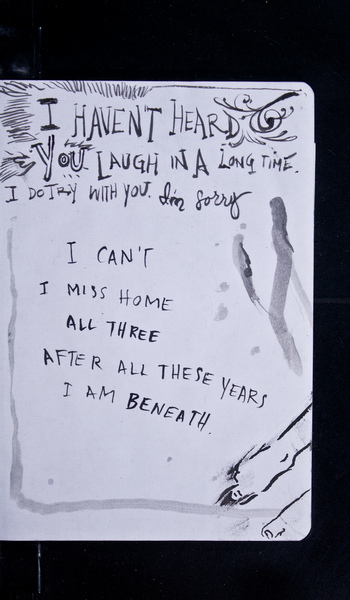 I HAVEN'T HEARD
YOU LAUGH IN A LONG TIME.
I DO TRY WITH YOU. I'm sorry
I CAN'T
I MISS HOME
ALL THREE
AFTER ALL THESE YEARS
I AM BENEATH.